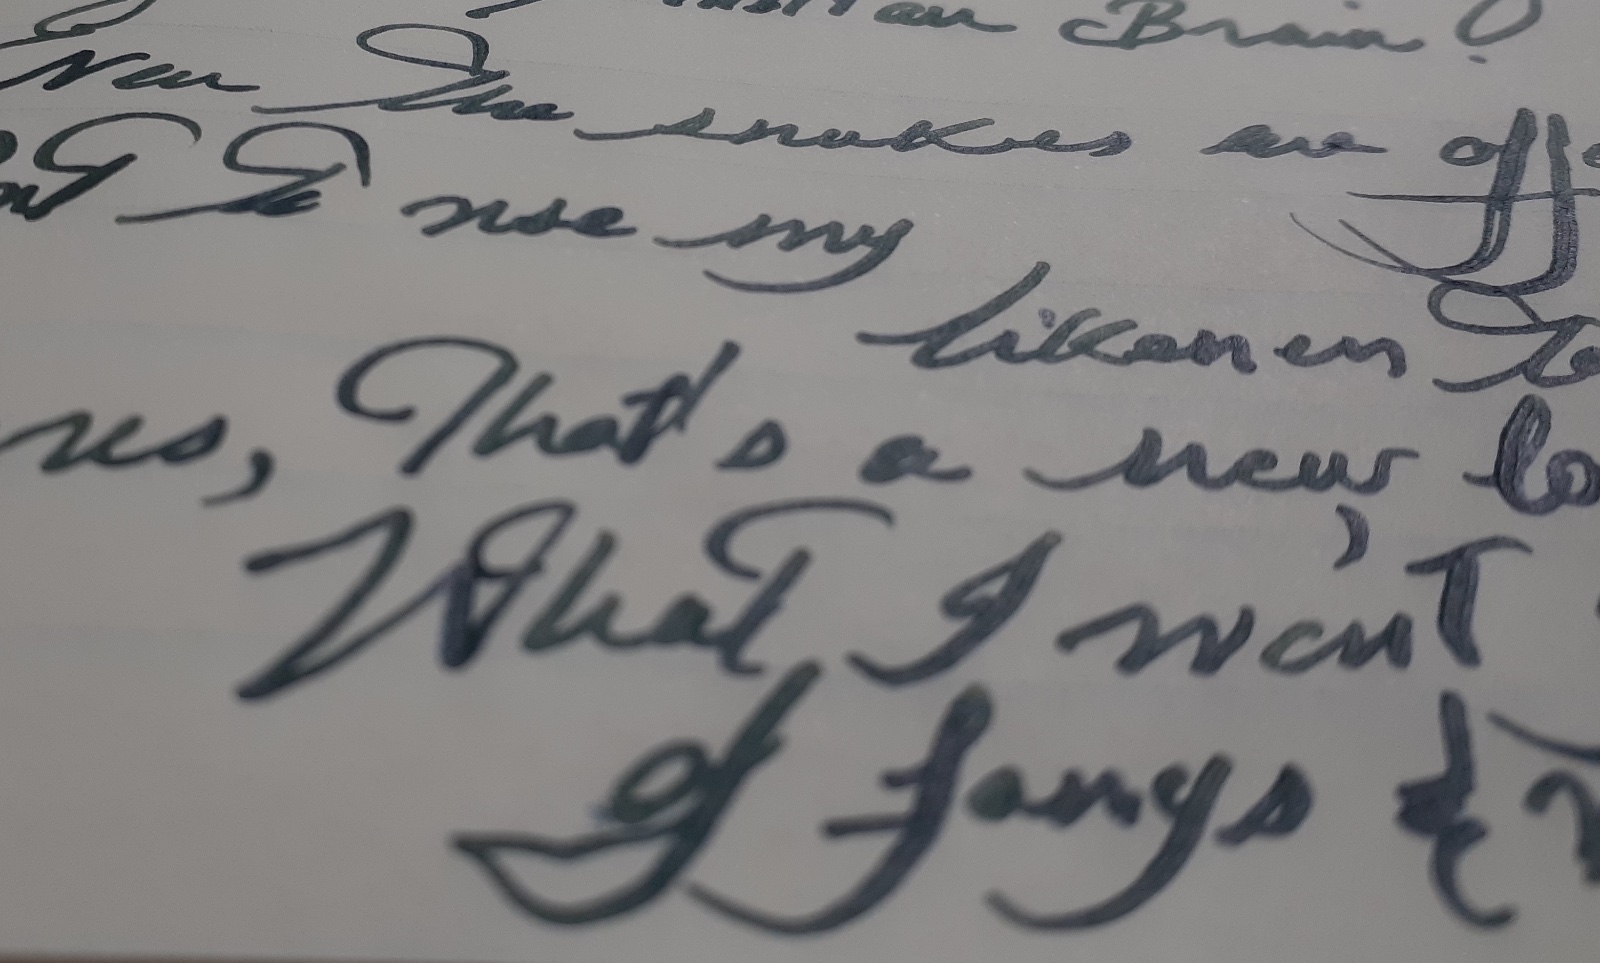 Brain?
New the snakes are of
to use my
likenen to
res, That's a new lo
What I want
of fangs &